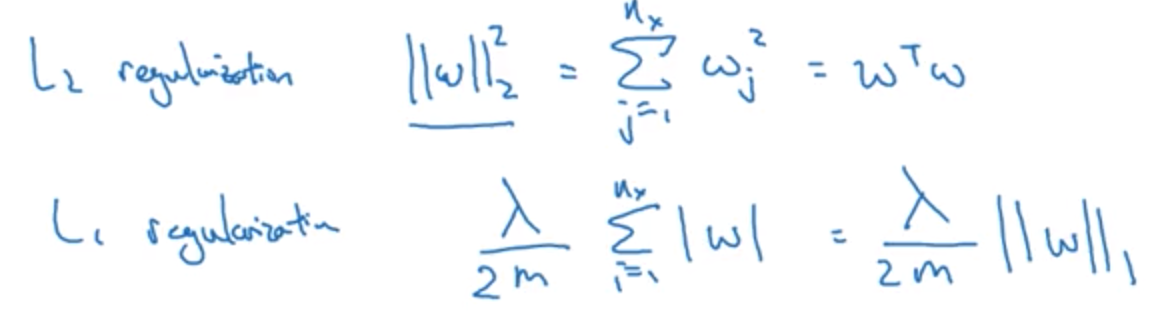 L₂ regularization ||ω||₂² = ∑_{j=1}^{nₓ} ωⱼ² = ωᵀω
L₁ regularization λ/2m ∑_{i=1}^{nₓ} |ω| = λ/2m ||ω||₁